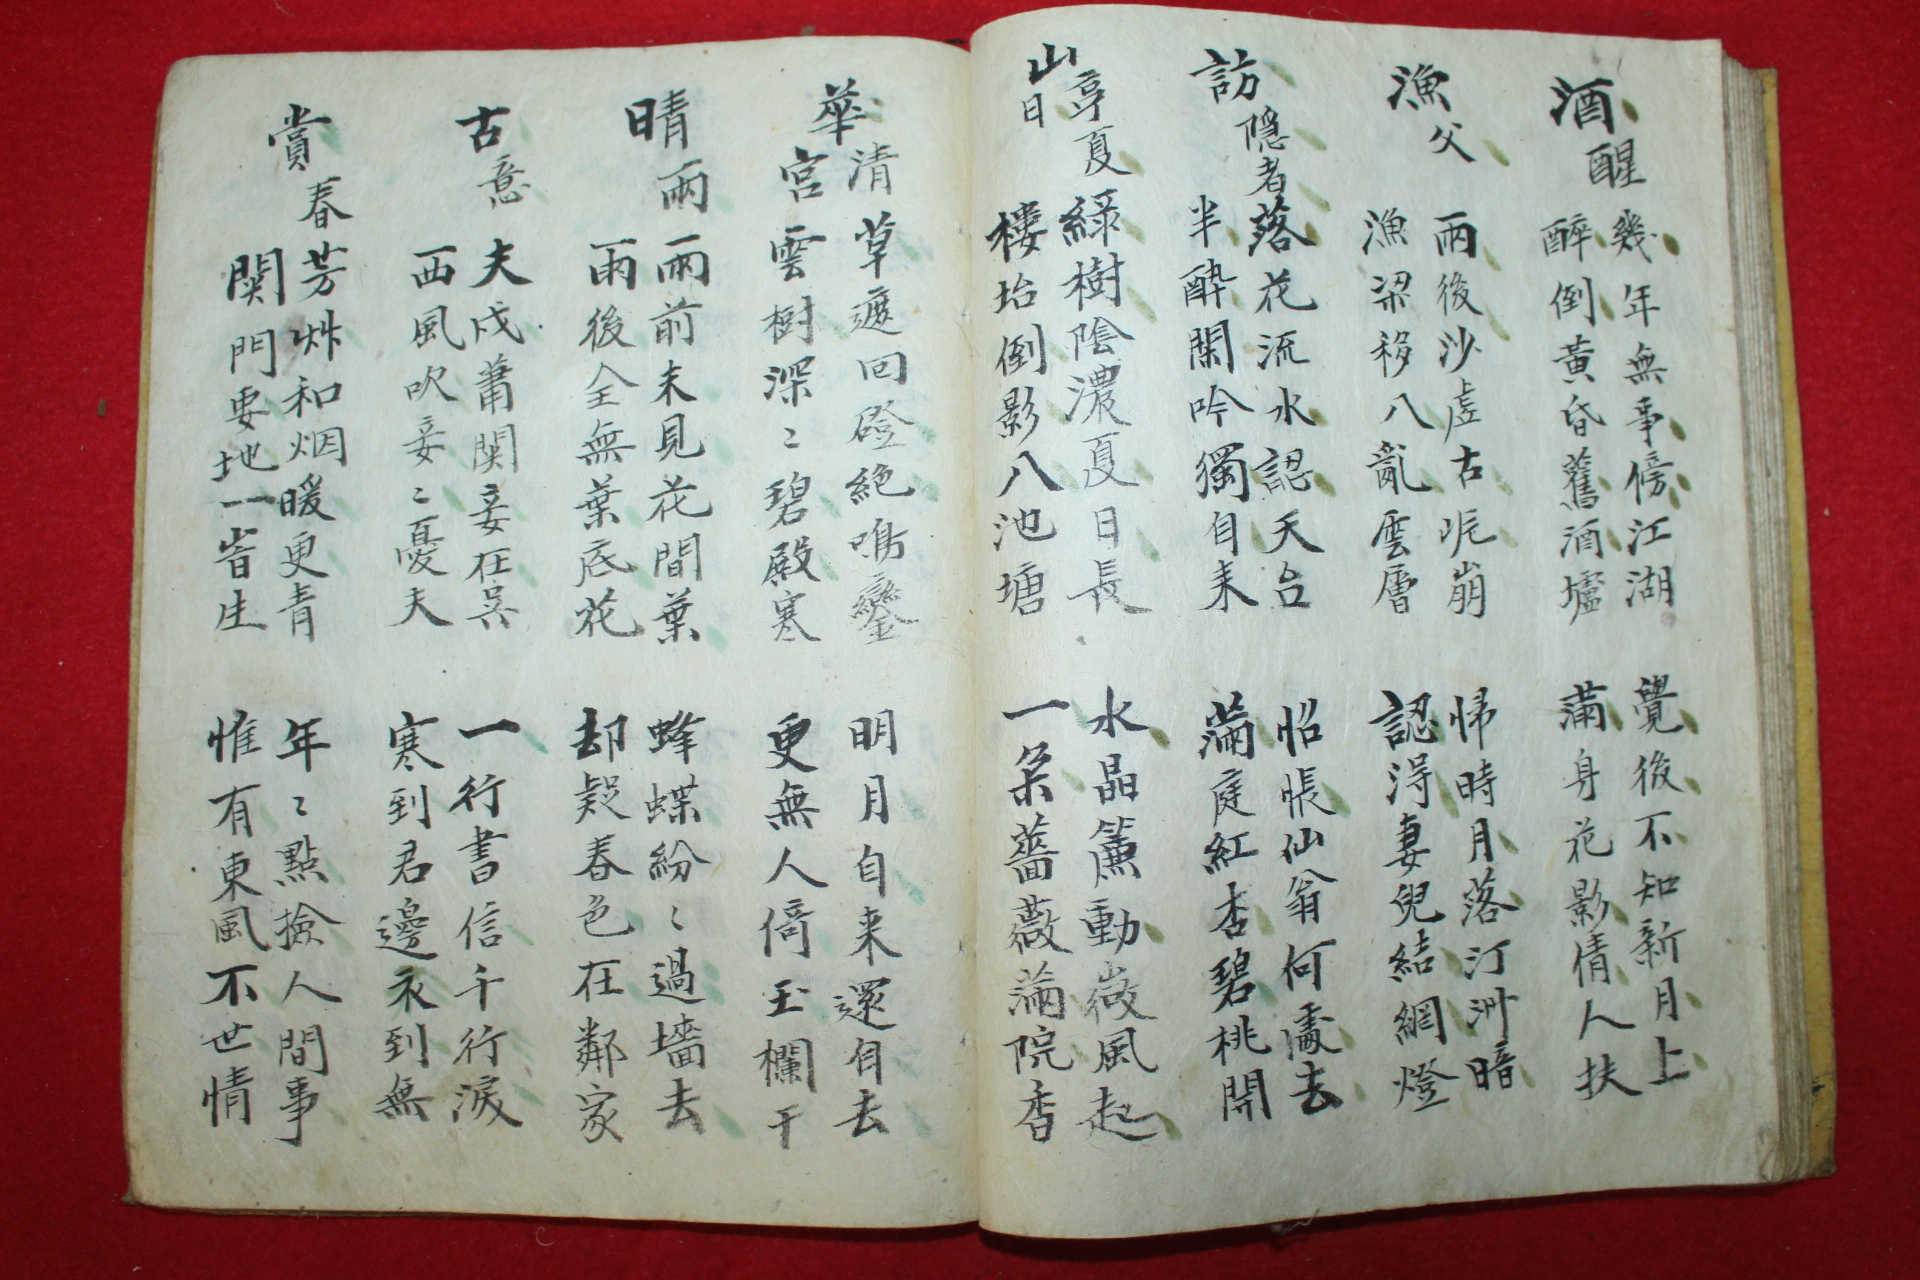 酒醒
幾年無事傍江湖
醉倒黃昏舊酒壚
覺後不知新月上
滿身花影倩人扶
漁父
雨後沙虛古呢崩
漁梁移入亂雲層
帰時月落汀洲暗
認得妻兒結網燈
訪隱者
落花流水認天台
半酔閑吟獨自来
怊悵仙翁何處去
滿庭紅杏碧桃開
山亭夏日
綠樹陰濃夏日長
樓坮倒影入池塘
水晶簾動微風起
一架薔薇滿院香
華清宮
草遮回磴絕鳴鑾
雲樹深〻碧殿寒
明月自来還自去
更無人倚玉欄干
晴雨
雨前未見花間葉
雨後全無葉底花
蜂蝶紛〻過墻去
却疑春色在鄰家
古意
夫戍蕭関妾在吳
西風吹妾〻憂夫
一行書信千行淚
寒到君邊衣到無
賞春
芳艸和烟暖更青
関門要地一峕生
年〻點撿人間事
惟有東風不世情